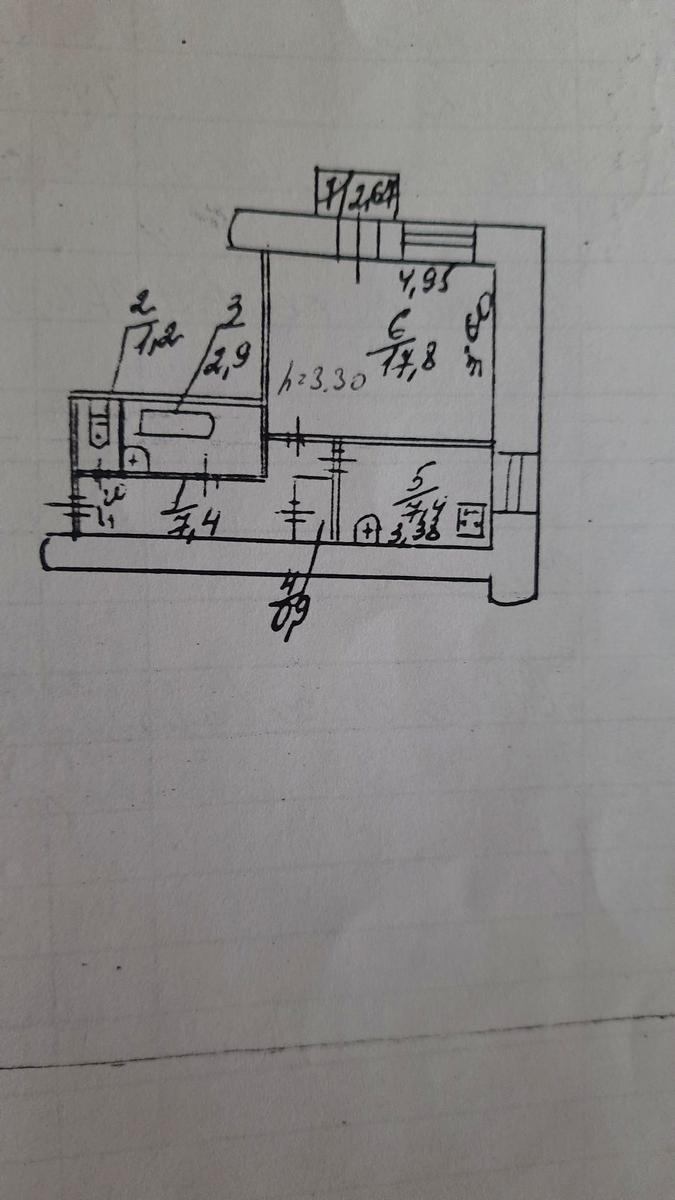 7/2,67
4,95
6
17,8
h=3.30
2
1,2
3
2,9
1
7,4
5
7,4
3,38
4
0,9